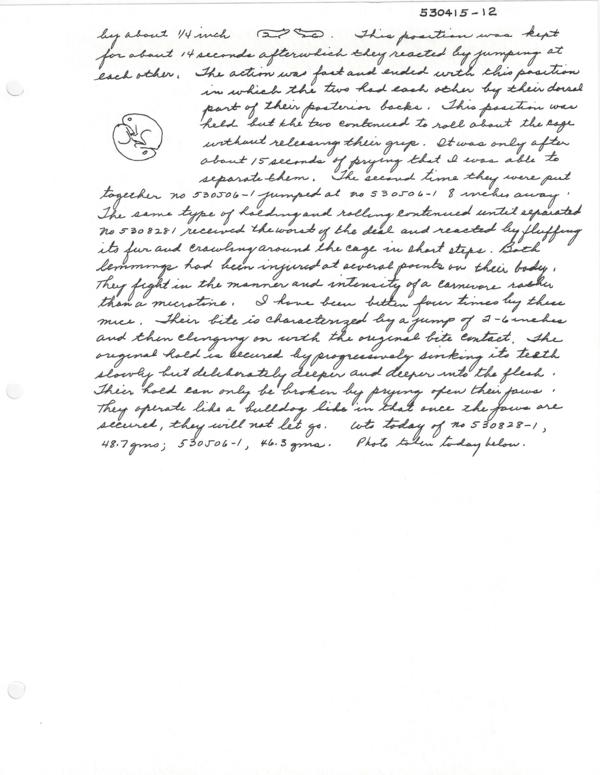 530415-12
by about 1/4 inch . This position was kept
for about 14 seconds afterwhich they reacted by jumping at
each other. The action was fast and ended with this position
in which the two had each other by their dorsal
part of their posterior backs. This position was
held but the two continued to roll about the cage
without releasing their grip. It was only after
about 15 seconds of prying that I was able to
separate them. The second time they were put
together no 530506-1 jumped at no 530506-1 8 inches away.
The same type of holding and rolling continued until separated
no 5308281 received the worst of the deal and reacted by fluffing
its fur and crawling around the cage in short steps. Both
lemmings had been injured at several points on their body.
They fight in the manner and intensity of a carnivore rather
than a microtine. I have been bitten four times by these
mice. Their bite is characterized by a jump of 2-6 inches
and then clinging on with the original bite contact. The
original hold is secured by progressively sinking its teeth
slowly but deliberately deeper and deeper into the flesh.
Their hold can only be broken by prying open their jaws.
They operate like a bulldog like in that once the jaws are
secured, they will not let go. Wts today of no 530828-1,
48.7 gms; 530506-1, 46.3 gms. Photo taken today below.